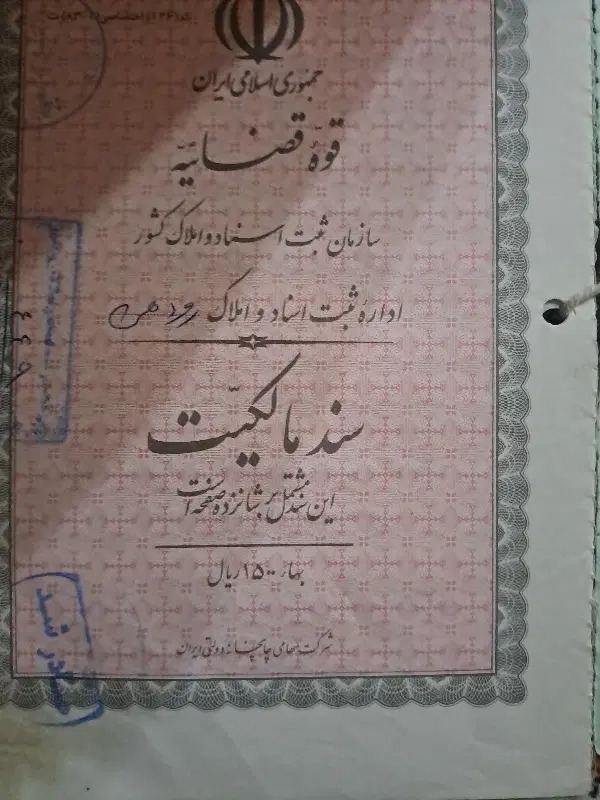 جمهوری اسلامی ایران
قوّهٔ قضائیّه
سازمان ثبت اسناد و املاک کشور
ادارهٔ ثبت اسناد و املاک رودهن
سند مالکیّت
این سند مشتمل بر شانزده صفحه است
بهاء ۱۵۰۰ ریال
شرکت سهامی چاپخانه دولتی ایران
صادر شد